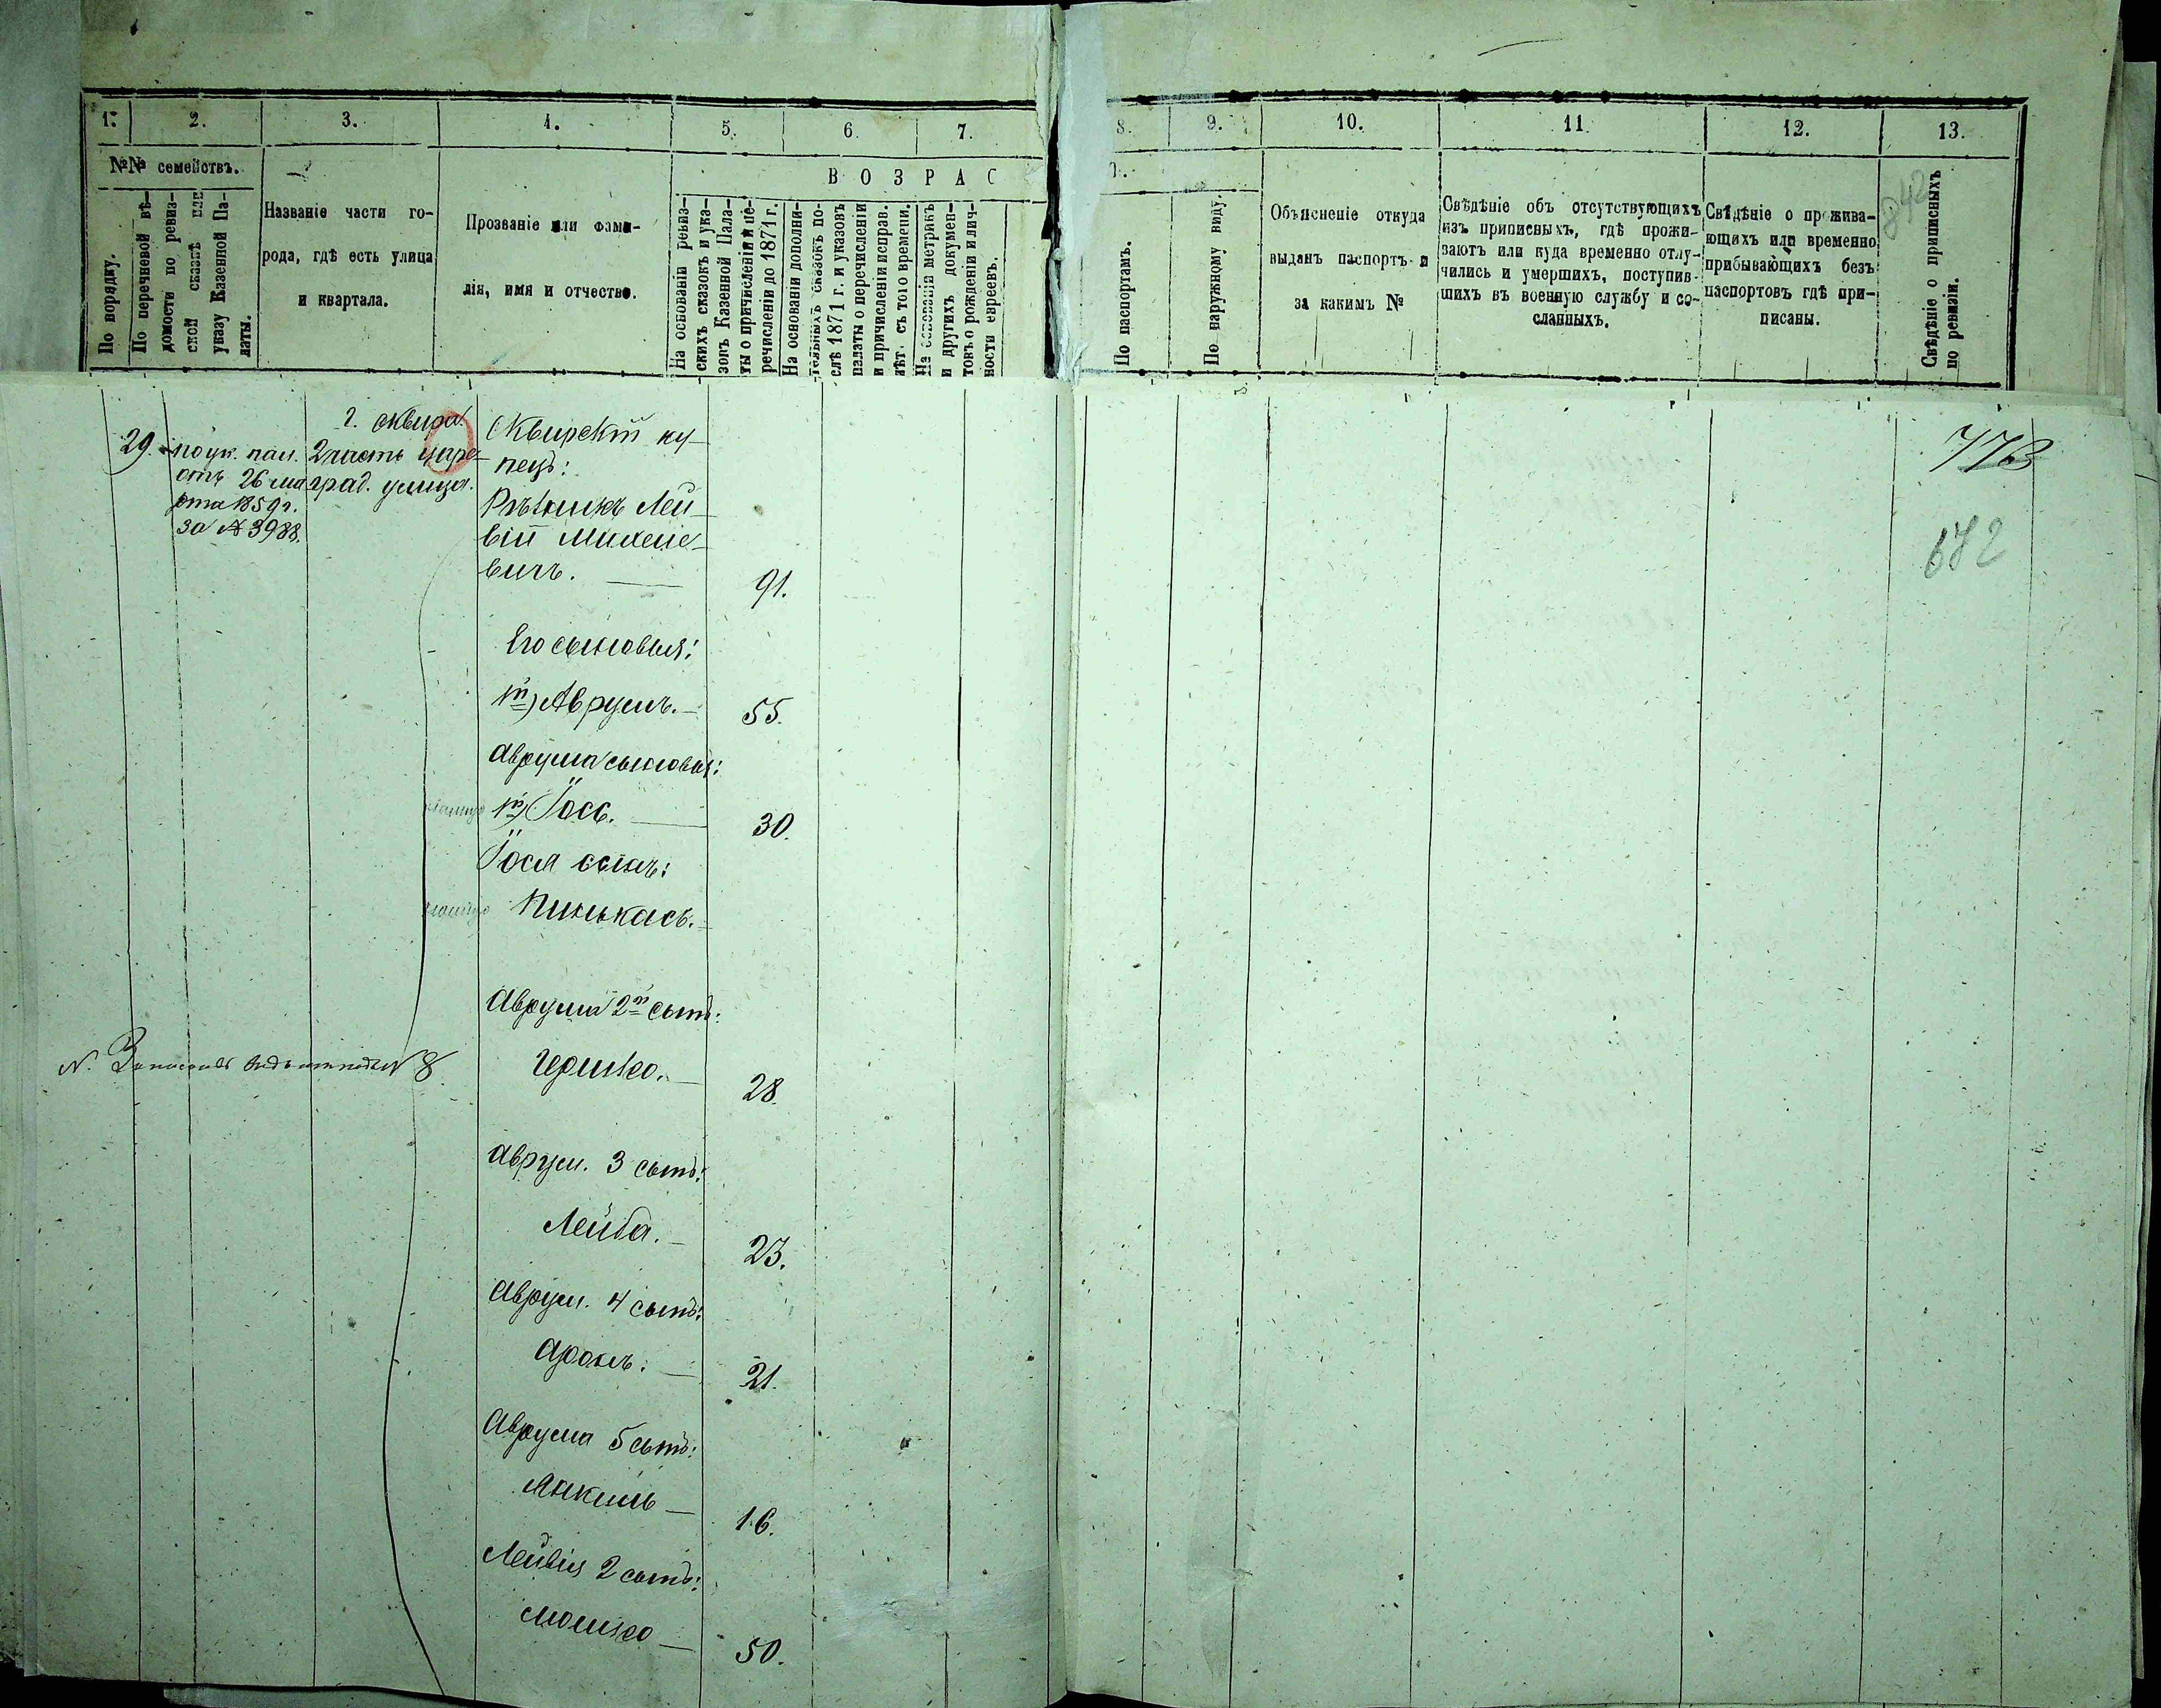 1.
2.
3.
4.
5.
6.
7.
8.
9.
10.
11.
12.
13.
№№ семействъ.
По порядку.
По перечневой вѣ-
домости по ревиз-
ской сказкѣ или
указу Казенной Па-
латы.
Названіе части го-
рода, гдѣ есть улица
и квартала.
Прозваніе или фами-
лія, имя и отчество.
ВОЗРАС
На основаніи ревиз-
скихъ сказокъ и ука-
зовъ Казенной Пала-
ты о причисленіи и пе-
речисленіи до 1871 г.
На основаніи дополни-
тельныхъ сказокъ по-
слѣ 1871 г. и указовъ
палаты о перечисленіи
и причисленіи исправ.
лѣт. съ того времени.
На основаніи метрикъ
и другихъ докумен-
товъ о рожденіи и лич-
ности евреевъ.
Т.
По паспортамъ.
По наружному виду.
Объясненіе откуда
выданъ паспортъ и
за какимъ №
Свѣдѣніе объ отсутствующихъ
изъ приписныхъ, гдѣ прожи-
ваютъ или куда временно отлу-
чились и умершихъ, поступив-
шихъ въ военную службу и со-
сланныхъ.
Свѣдѣніе о прожива-
ющихъ или временно
прибывающихъ безъ
паспортовъ гдѣ при-
писаны.
Свѣдѣніе о приписныхъ
по ревизіи.
29.
по ук. пал.
отъ 26 ма
рта 1859 г.
за № 3988.
г. Сквира.
2 часть царе-
град. улица.
Сквирскій ку-
пецъ:
Лей-
вій Михеле-
вичъ.
91.
Его сыновья:
1й) Аврумъ.
55.
Аврума сыновья:
1й) Іось.
30.
Іося сынъ:
Пинькасъ.
Аврума 2й сынъ:
Гершко.
28.
N.
N 8
Аврум. 3 сынъ:
Лейба.
23.
Аврум. 4 сынъ:
Аронъ.
21.
Аврума 5 сынъ:
Янкель
16.
Лейвія 2 сынъ:
Мошко
50.
776
672